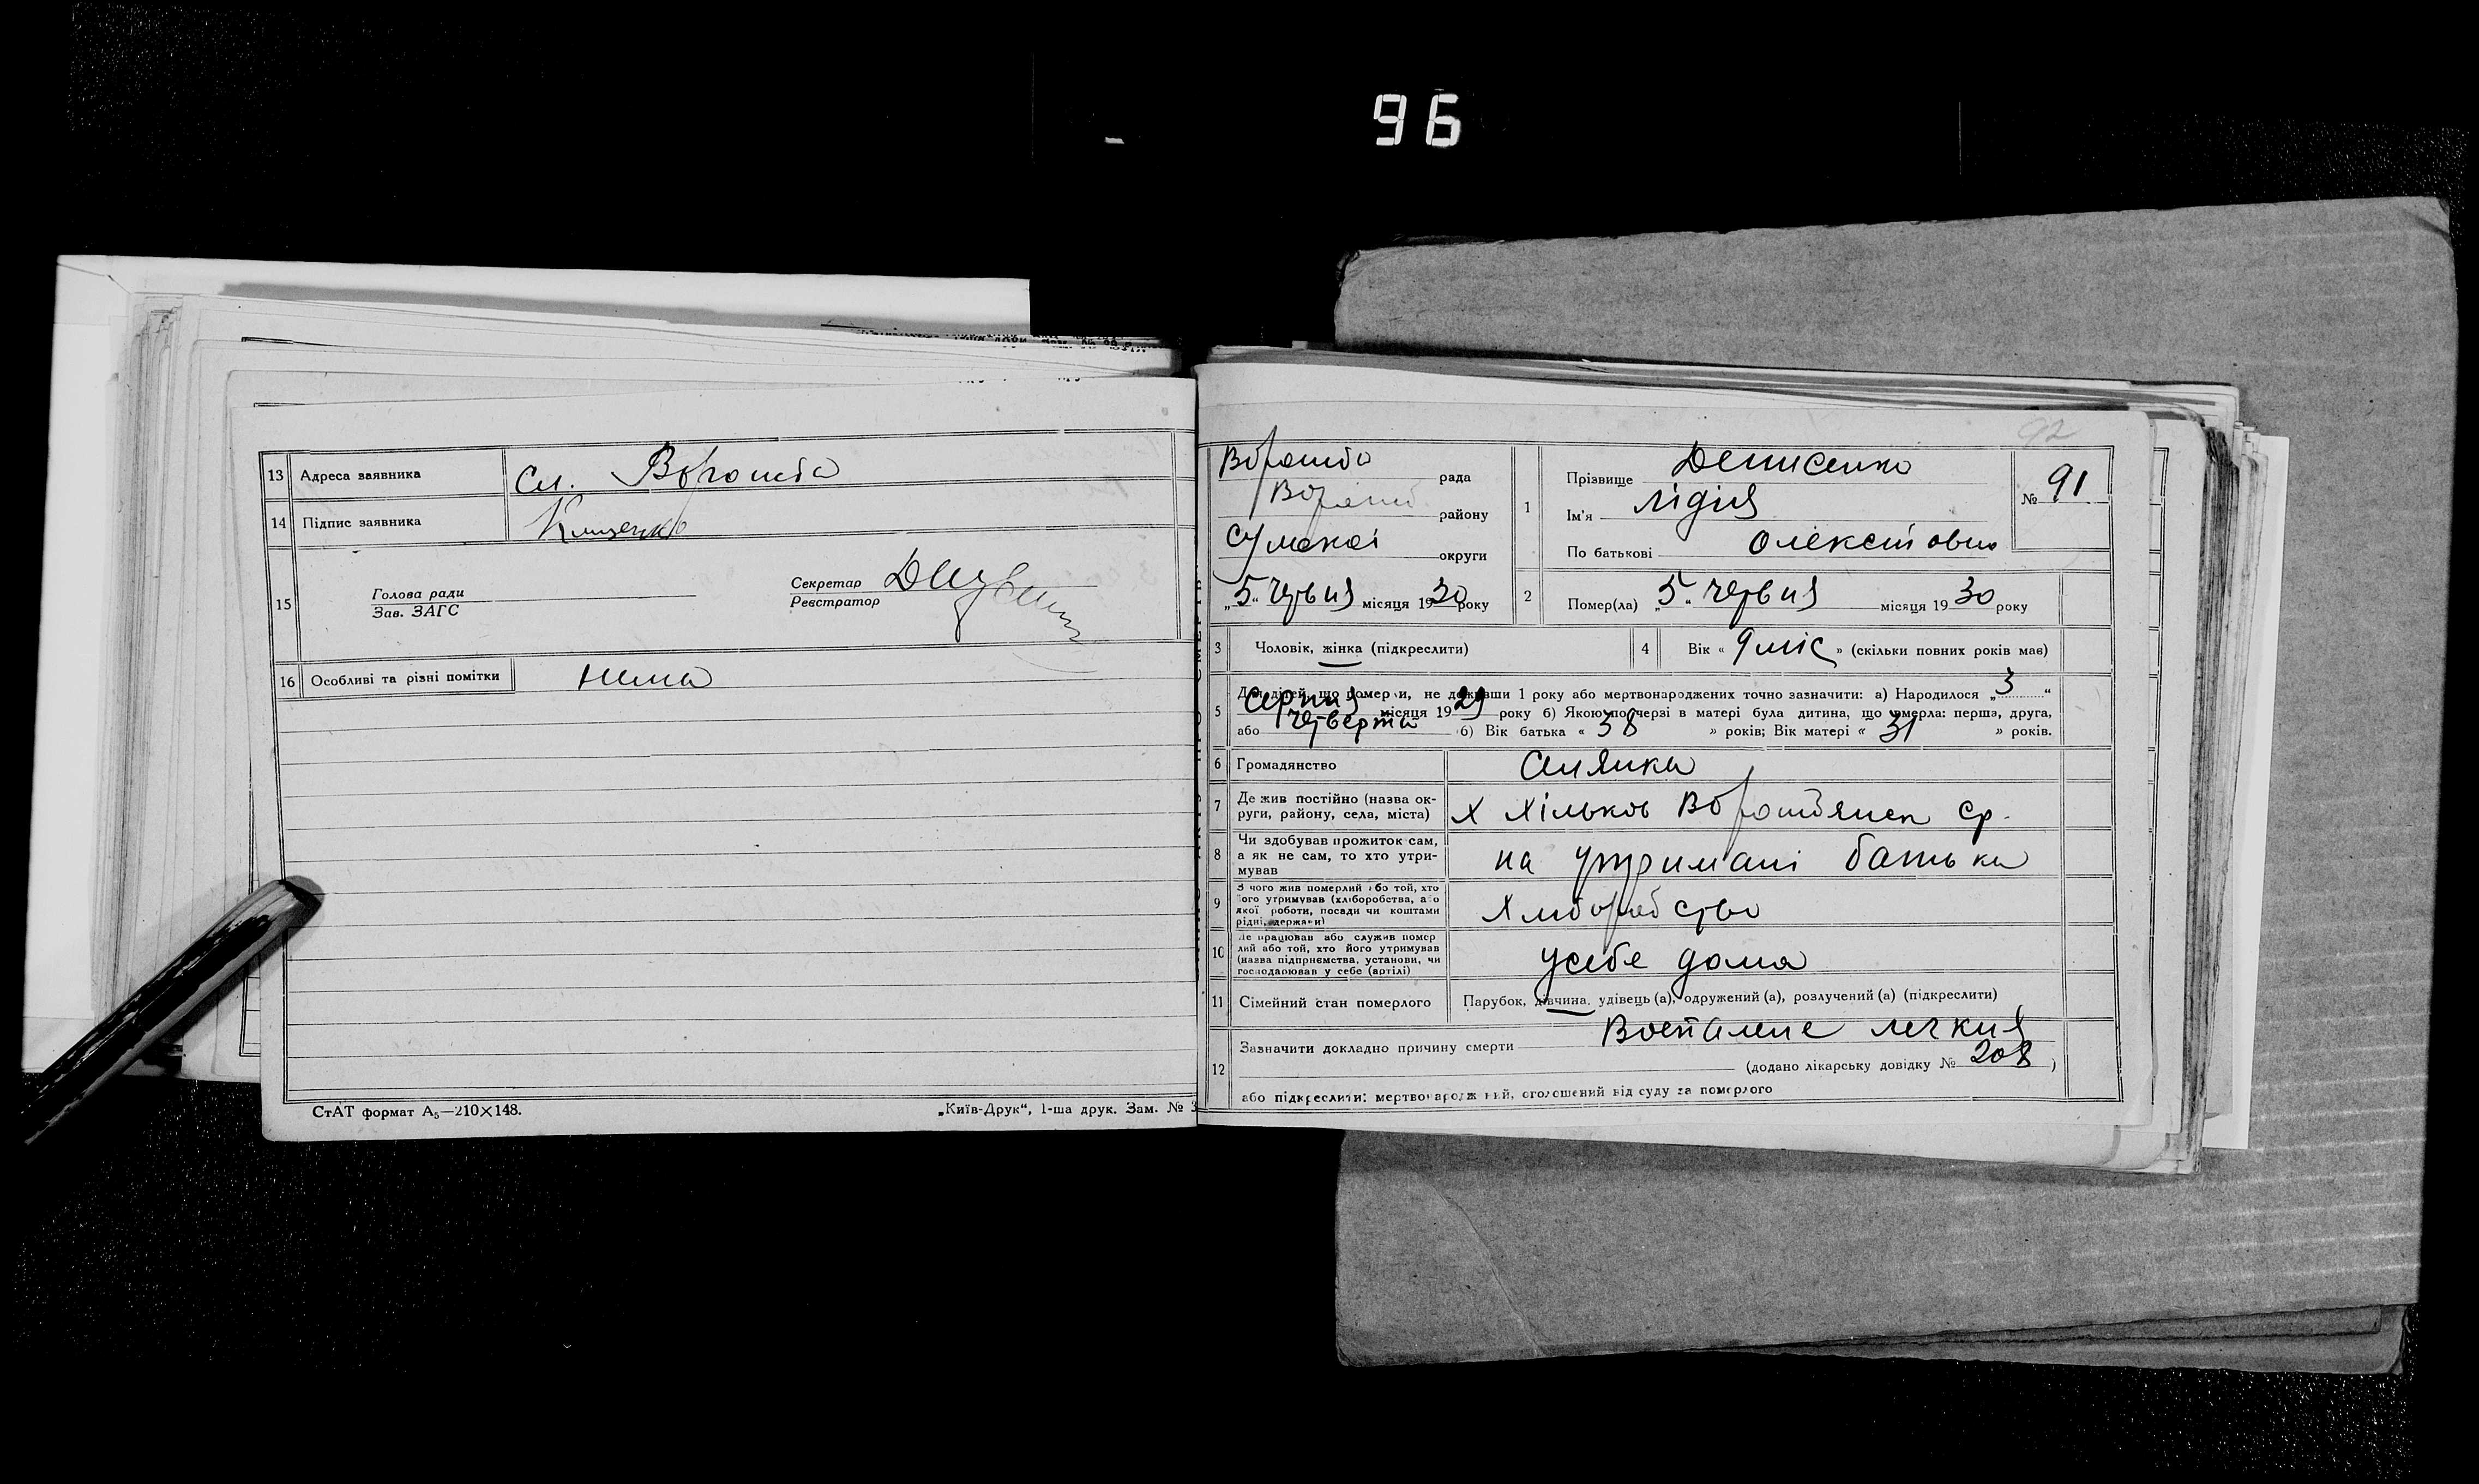 96
13 Адреса заявника Сл. Ворожба
14 Підпис заявника Клищенко
15 Голова ради
Зав. ЗАГС
Секретар
Реєстратор
16 Особливі та різні помітки нима
СтАТ формат А₅—210×148.
„Київ-Друк“, 1-ша друк. Зам. № 3
92
Ворожба рада
району
Сумскої округи
„5“ червня місяця 1930 року
1 Прізвище Денисенко
Ім'я Лідия
По батькові Олексіївна
№ 91
2 Помер(ла) „5“ червня місяця 1930 року
3 Чоловік, жінка (підкреслити)
4 Вік « 9 міс » (скільки повних років має)
5 Для дітей, що померли, не доживши 1 року або мертвонароджених точно зазначити: а) Народилося „3“
Серпня місяця 1929 року б) Якою по черзі в матері була дитина, що вмерла: перша, друга,
або четверта б) Вік батька « 38 » років; Вік матері « 31 » років.
6 Громадянство Силянка
7 Де жив постійно (назва ок-
руги, району, села, міста) х Хільков Ворожбянск ср.
8 Чи здобував прожиток сам,
а як не сам, то хто утри-
мував на утримані батька
9 З чого жив померлий або той, хто
його утримував (хліборобства, або
якої роботи, посади чи коштами
рідні, держави) Хлиборобство
10 Де працював або служив помер
лий або той, хто його утримував
(назва підприємства, установи, чи
господарював у себе (артілі) усебе дома
11 Сімейний стан померлого Парубок, дівчина, удівець (а), одружений (а), розлучений (а) (підкреслити)
12 Зазначити докладно причину смерти Воспаление легких
(додано лікарську довідку № 208)
або підкреслити: мертвонароджений, оголошений від суду за померлого